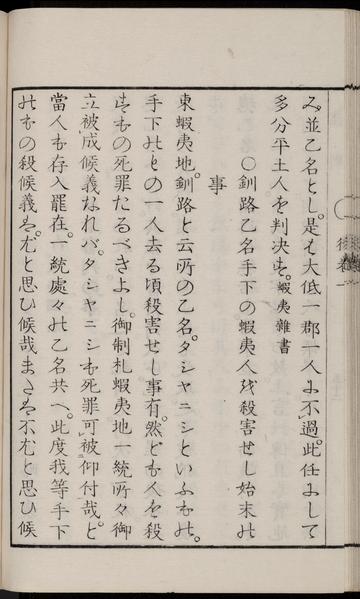 み並乙名とし。是も大低一郡一人よ不過。此任よして
多分平土人を判决す。蝦夷雑書
○釧路乙名手下の蝦夷人を殺害せし始末の
事
東蝦夷地。釧路と云所の乙名。タシヤニシといふもの。
手下のもの一人去る頃殺害せし事有。然ども人を殺
すもの死罪たるべきよし。御制札蝦夷地一統所々御
立被成候義なれバ。タシヤニシも死罪可被仰付哉。と
當人も存入罷在。一統處々の乙名共へ。此度我等手下
のもの殺候義を。尤と思ひ候哉またを不尤と思ひ候